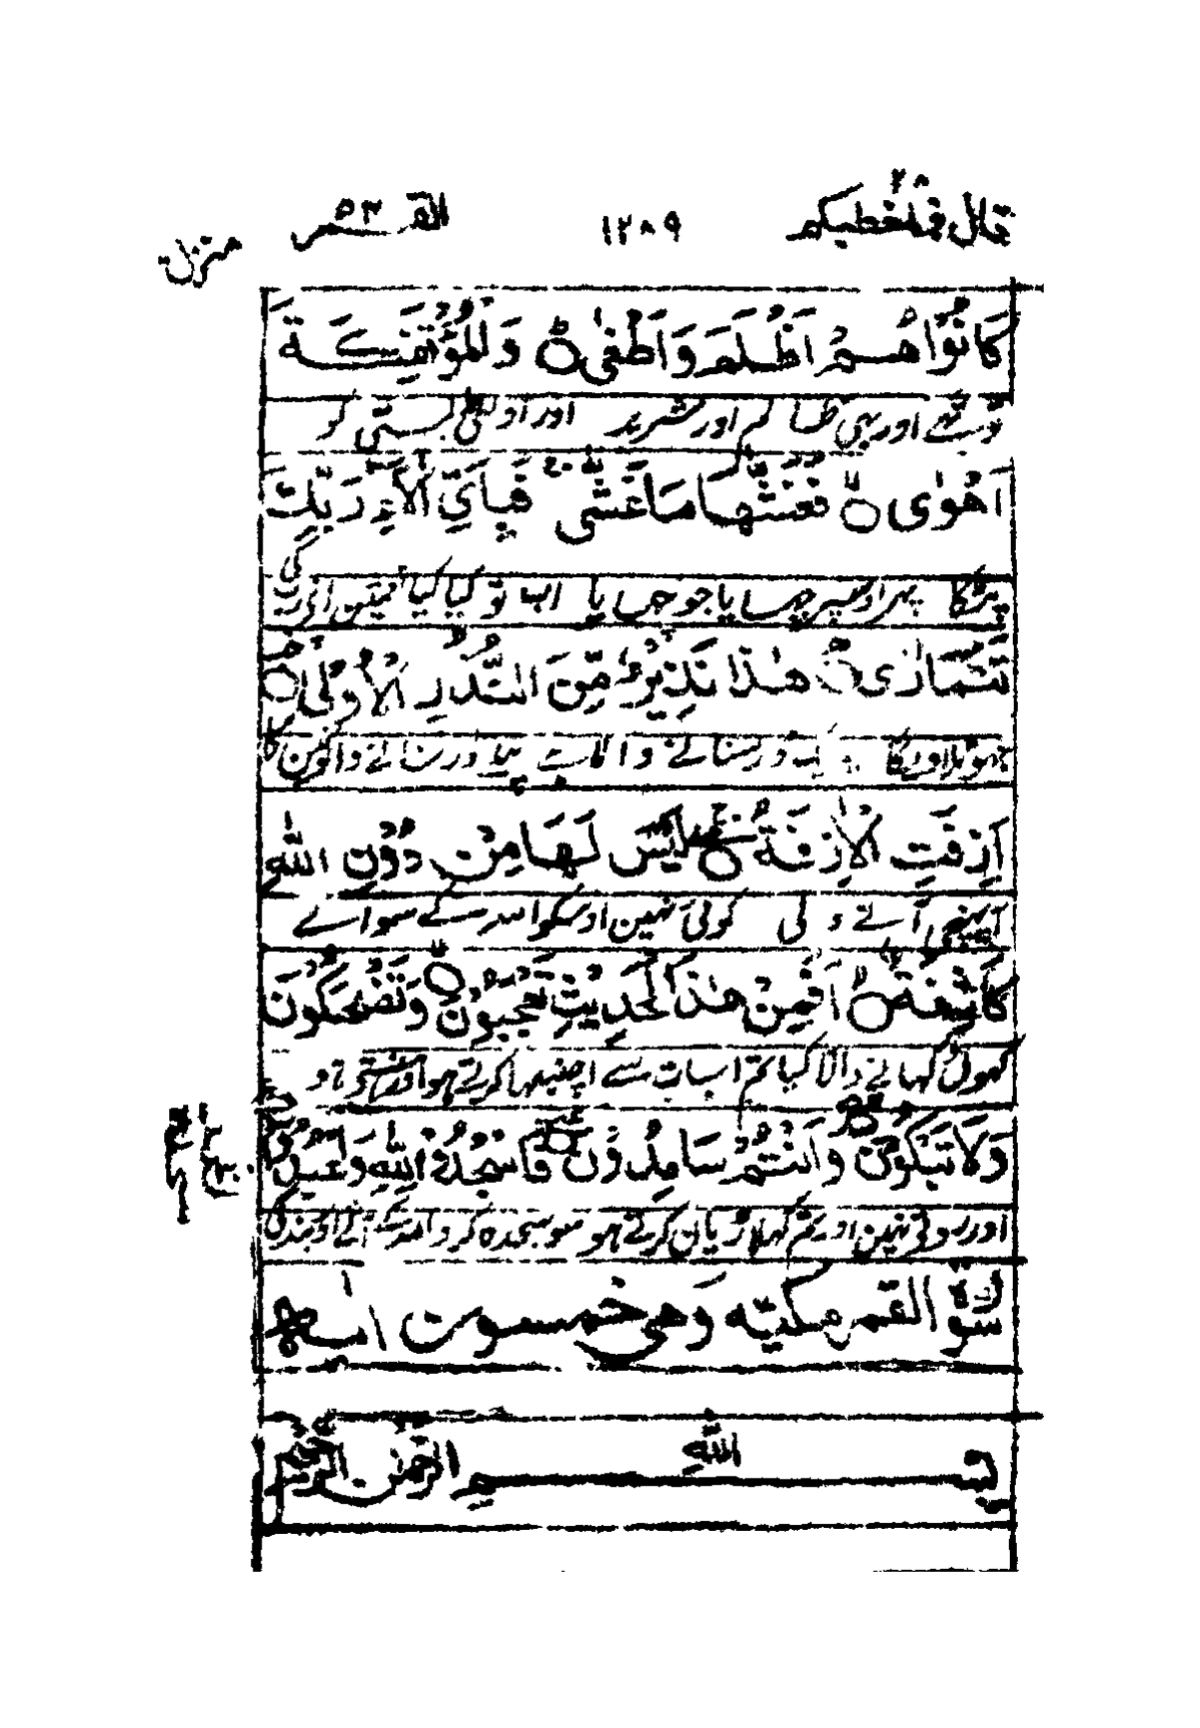 قال فما خطبكم ۲۷ ۱۲۸۹ القمر ۵۳
منزل
كَانُوْا هُمْ اَظْلَمَ وَاَطْغٰى ۝ وَالْمُؤْتَفِكَةَ
تھے اور بہی ظالم اور شریر اور اولٹی بستی کو
اَهْوٰى ۝ فَغَشّٰىهَا مَا غَشّٰى ۝ فَبِاَيِّ اٰلَآءِ رَبِّكَ
پٹکا پہر اوسپر چہایا جو چہایا اب تو کیا کیا نعمتین اپنی رب کی
تَتَمَارٰى ۝ هٰذَا نَذِيْرٌ مِّنَ النُّذُرِ الْاُوْلٰى ۝
جہوٹلاویگا یہ ایک ڈر سنانے والا ہے پہلے ڈر سنانے والون کا
اَزِفَتِ الْاٰزِفَةُ ۝ لَيْسَ لَهَا مِنْ دُوْنِ اللّٰهِ
آپہنچی آنے والی کوئی نہین اوسکو اللہ کے سواے
كَاشِفَةٌ ۝ اَفَمِنْ هٰذَا الْحَدِيْثِ تَعْجَبُوْنَ ۝ وَتَضْحَكُوْنَ
کہول کہانے والا کیا تم اس بات سے اچنبہا کرتے ہو اور ہنستے ہو
وَلَا تَبْكُوْنَ ۝ وَاَنْتُمْ سَامِدُوْنَ ۝ فَاسْجُدُوْا لِلّٰهِ وَاعْبُدُوْا ۝
اور روتے نہین اور تم کہلاڑیان کرتے ہو سو سجدہ کرو اللہ کے آگے اور بندگی
سورة القمر مكيّة وهي خمس وخمسون اٰية
بسم الله الرحمن الرحيم